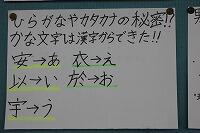 ひらがなやカタカナの秘密!?
かな文字は漢字からできた!!
安→あ 衣→え
以→い 於→お
宇→う